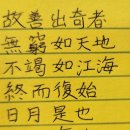 故善出奇者
無窮如天地
不竭如江海
終而復始
日月是也